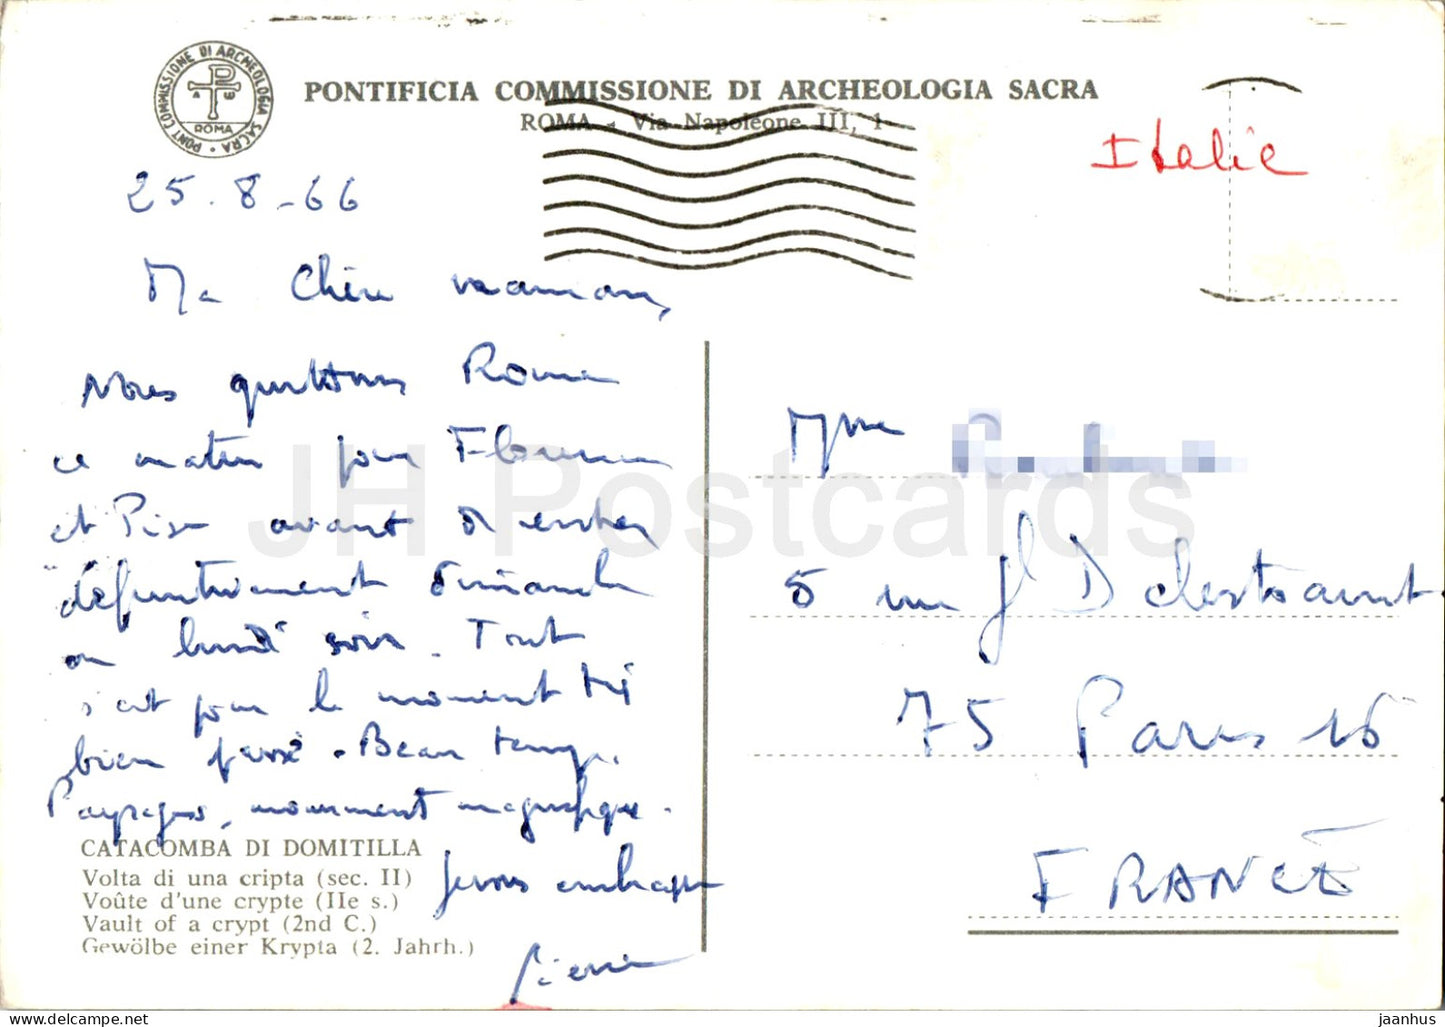 PONT COMMISSIONE DI ARCHEOLOGIA SACRA
ROMA
PONTIFICIA COMMISSIONE DI ARCHEOLOGIA SACRA
ROMA - Via Napoleone III, 1
Italie
25.8-66
Ma Chère maman,
Nous quittons Rome
ce matin pour Florence
et Pise avant de rentrer
définitivement dimanche
ou lundi soir. Tout
s'est pour le moment très
bien passé. Beau temps.
Paysages, monuments magnifiques.
Je vous embrasse
Pierre
CATACOMBA DI DOMITILLA
Volta di una cripta (sec. II)
Voûte d'une crypte (IIe s.)
Vault of a crypt (2nd C.)
Gewölbe einer Krypta (2. Jahrh.)
Mme
5 rue Gl Delestraint
75 Paris 16
FRANCE
JH Postcards
www.delcampe.net
jaanhus